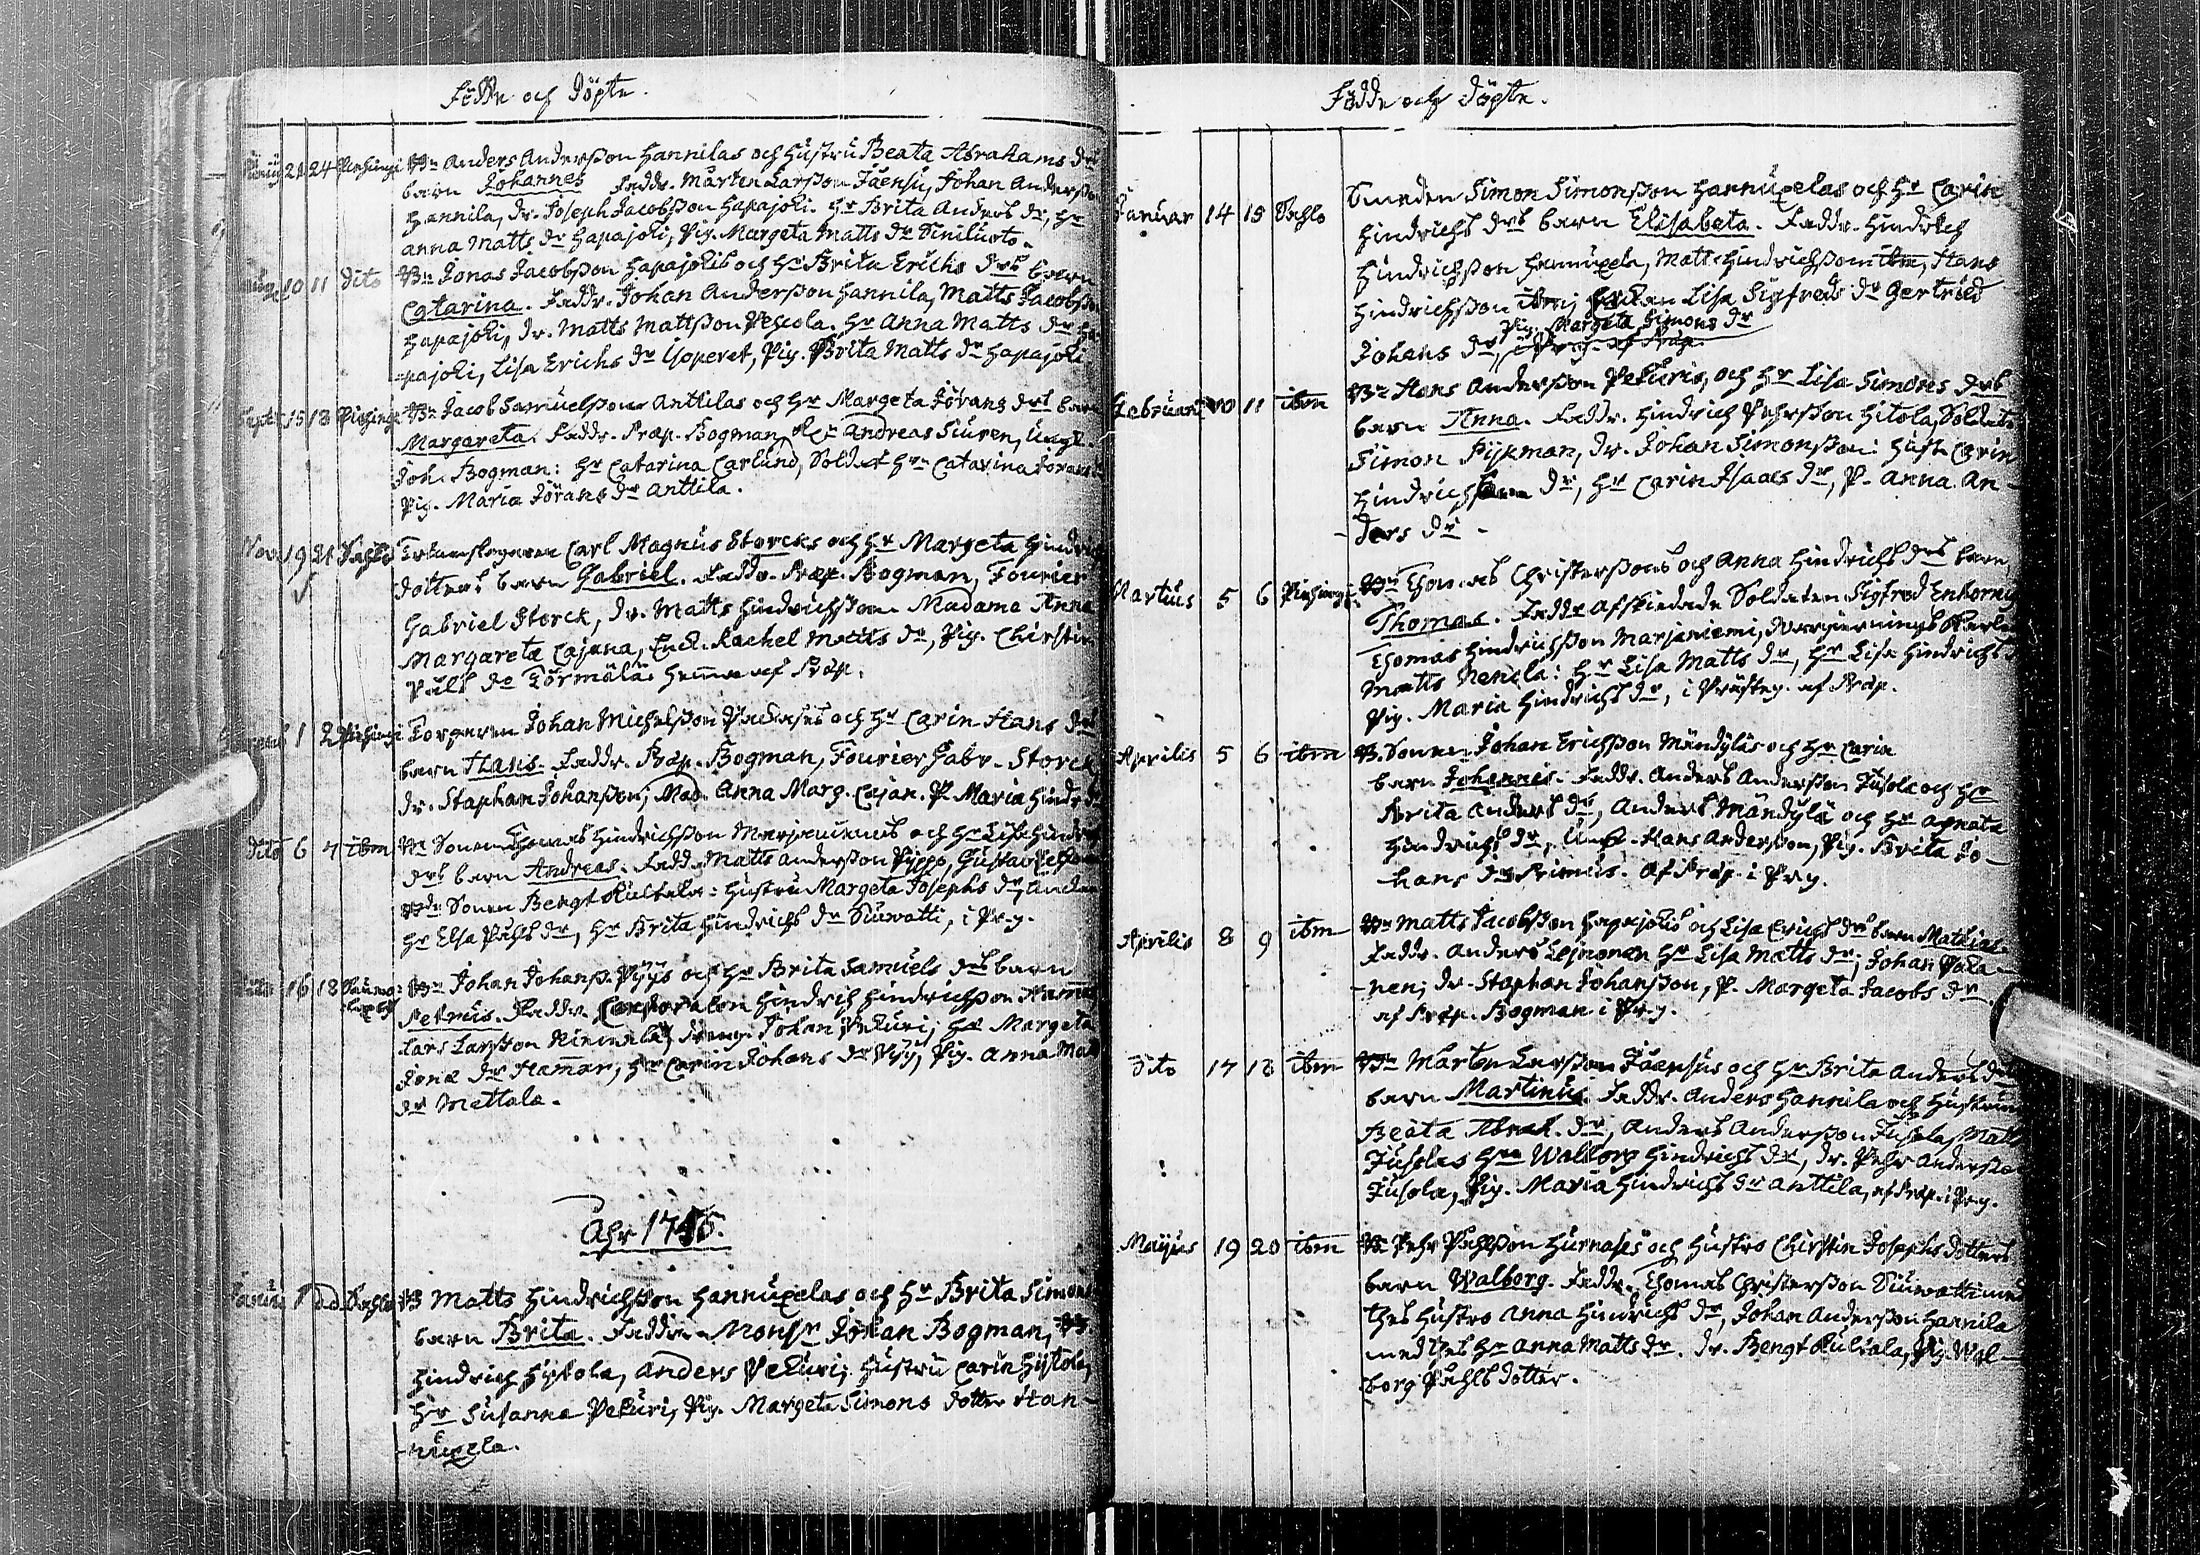 Födde och Döpte.
21 24 Bn Anders Andersson Hannilas och Hustru Beata Abrahams drs
barn Johannes Faddr. Mårten Larsson Jäensu, Johan Andersson
Hannila, dr. Joseph Jacobsson Hapajoki. Hr Brita Anders dr, Hr
Anna Matts dr Hapajoki, Pig. Margeta Matts dr
10 11 dito Bn Jonas Jacobsson Hapajokis och Hr Brita Erichs drs barn
Catarina. Faddr. Johan Andersson Hannila, Matts Jacobsson
Hapajoki, dr. Matts Mattsson Pescola. Hr Anna Matts dr Ha-
pajoki, Lisa Erichs dr Isoperet, Pig. Brita Matts dr Hapajoki
Sept 15 18 Bn Jacob Samuelsson Anttilas och Hr Margeta Jörans drs barn
Margareta. Faddr. Præp. Bogman, Andreas Siuren,
Joh. Bogman: Hr Catarina Carlund, Soldat Hr Catarina Jörans
Pig. Maria Jörans dr Anttila.
Nov. 19 21 Carl Magnus Storcks och Hr Margeta Hindrichs
dotters barn Gabriel. Faddr. Præp. Bogman, Fourier
Gabriel Storck, dr. Matts Hindrichsson Madama Anna
Margareta Cajana, Enck. Rachel Matts dr, Pig. Chirstin
Påls dr Törmälä: Hemma af Præp.
1 2 Torparen Johan Michelsson och Hr Carin Hans drs
barn Hans. Faddr. Præp. Bogman, Fourier Gabr. Storck,
dr. Staphan Johansson; Mad. Anna Marg. Cajan. P. Maria Hindr. dr
Dito 6 7 ibm Bn Sonen Thomas Hindrichsson och Hr Lisa Hindrichs
drs barn Andreas. Faddr. Matts Andersson Pyppo, Gustav
Bde Sonen Bengt Kultala: Hustru Margeta Josephs dr,
Hr Elsa Påhls dr, Hr Brita Hindrichs dr Siuwatti, i Prg.
16 18 Bn Johan Johanss. Pyys och Hr Brita Samuels drs barn
Petrus. Faddr. Corporalen Hindrich Hindrichsson Hamar
Lars Larsson Niemelä, dreng. Johan Pekuri; Hr Margeta
Jonæ dr Hamar, Hr Carin Johans dr Pyy, Pig. Anna Matts
dr Mattala.
Åhr 1745.
1 d.d. B Matts Hindrichsson Hannuxelas och Hr Brita Simons
barn Brita. Faddr. Monsr Johan Bogman, B
Hindrich Hystola, Anders Pekuri; Hustru Carin Hystola,
Hr Susanna Pekuri, Pig. Margeta Simons dotter Han-
nuxela.
Födde och Döpte.
Januar 14 15 Smeden Simon Simonsson Hannuxelas och Hr Carin
Hindrichs drs barn Elisabeta. Faddr. Hindrich
Hindrichsson Hannuxela, Matts Hindrichsson ibm, Hans
Hindrichsson ibm; Lisa Sigfreds dr Gertrud
Pig. Margeta Simons dr
Johans dr, i Prg. af Præp.
Februari 10 11 ibm Bn Hans Andersson Pekuris, och Hr Lisa Simons drs
barn Anna. Faddr. Hindrich Pehrsson Hitola, Soldat
Simon Pijkman, dr. Johan Simonsson: Hustr Carin
Hindrichs dr, Hr Carin Isaacs dr, P. Anna An-
ders dr
Martius 5 6 Bn Thomas Christerssons och Anna Hindrichs drs barn
Thomas. Faddr Afskiedade Soldaten Sigfred Enhorning
Thomas Hindrichsson Marjaniemi,
Matts Nencla: Hr Lisa Matts dr, Hr Lisa Hindrichs dr
Pig. Maria Hindrichs dr, i Prästeg. af Præp.
Aprilis 5 6 ibm B. Sonen Johan Erichsson Mändyläs och Hr Carin
barn Johannis. Faddr. Anders Andersson Jusola och Hr
Brita Anders dr, Anders Mändylä och Hr Agneta
Hindrichs dr, Hans Andersson, Pig. Brita Jo-
hans dr af Præp. i Prg.
Aprilis 8 9 ibm Bn Matts Jacobsson Hapajokis och Lisa Erichs drs barn Mathias.
Faddr. Anders Hr Lisa Matts dr; Johan
nen; dr. Staphan Johansson, P. Margeta Jacobs dr
af Præp. Bogman i Prg.
Dito 17 18 ibm Bn Mårten Larsson Jäensus och Hr Brita Anders drs
barn Martinus. Faddr. Anders Hannila och Hustrun
Beata Abrah. dr, Anders Andersson Jusola, Matts
Jusolas Hru Walborg Hindrichs dr, dr. Pehr Andersson
Jusola, Pig. Maria Hindrichs dr Anttila, af Præp. i Prg.
Majus 19 20 ibm Bn Pehr Påhlsson Hurnases och Hustro Chirstin Josephs dotters
barn Walborg. Faddr. Thomas Christersson Siuwatti med
thes Hustro Anna Hindrichs dr, Johan Andersson Hannila
med thes Hr Anna Matts dr. dr. Bengt Kultala, Pig. Wal-
borg Påhls dotter.